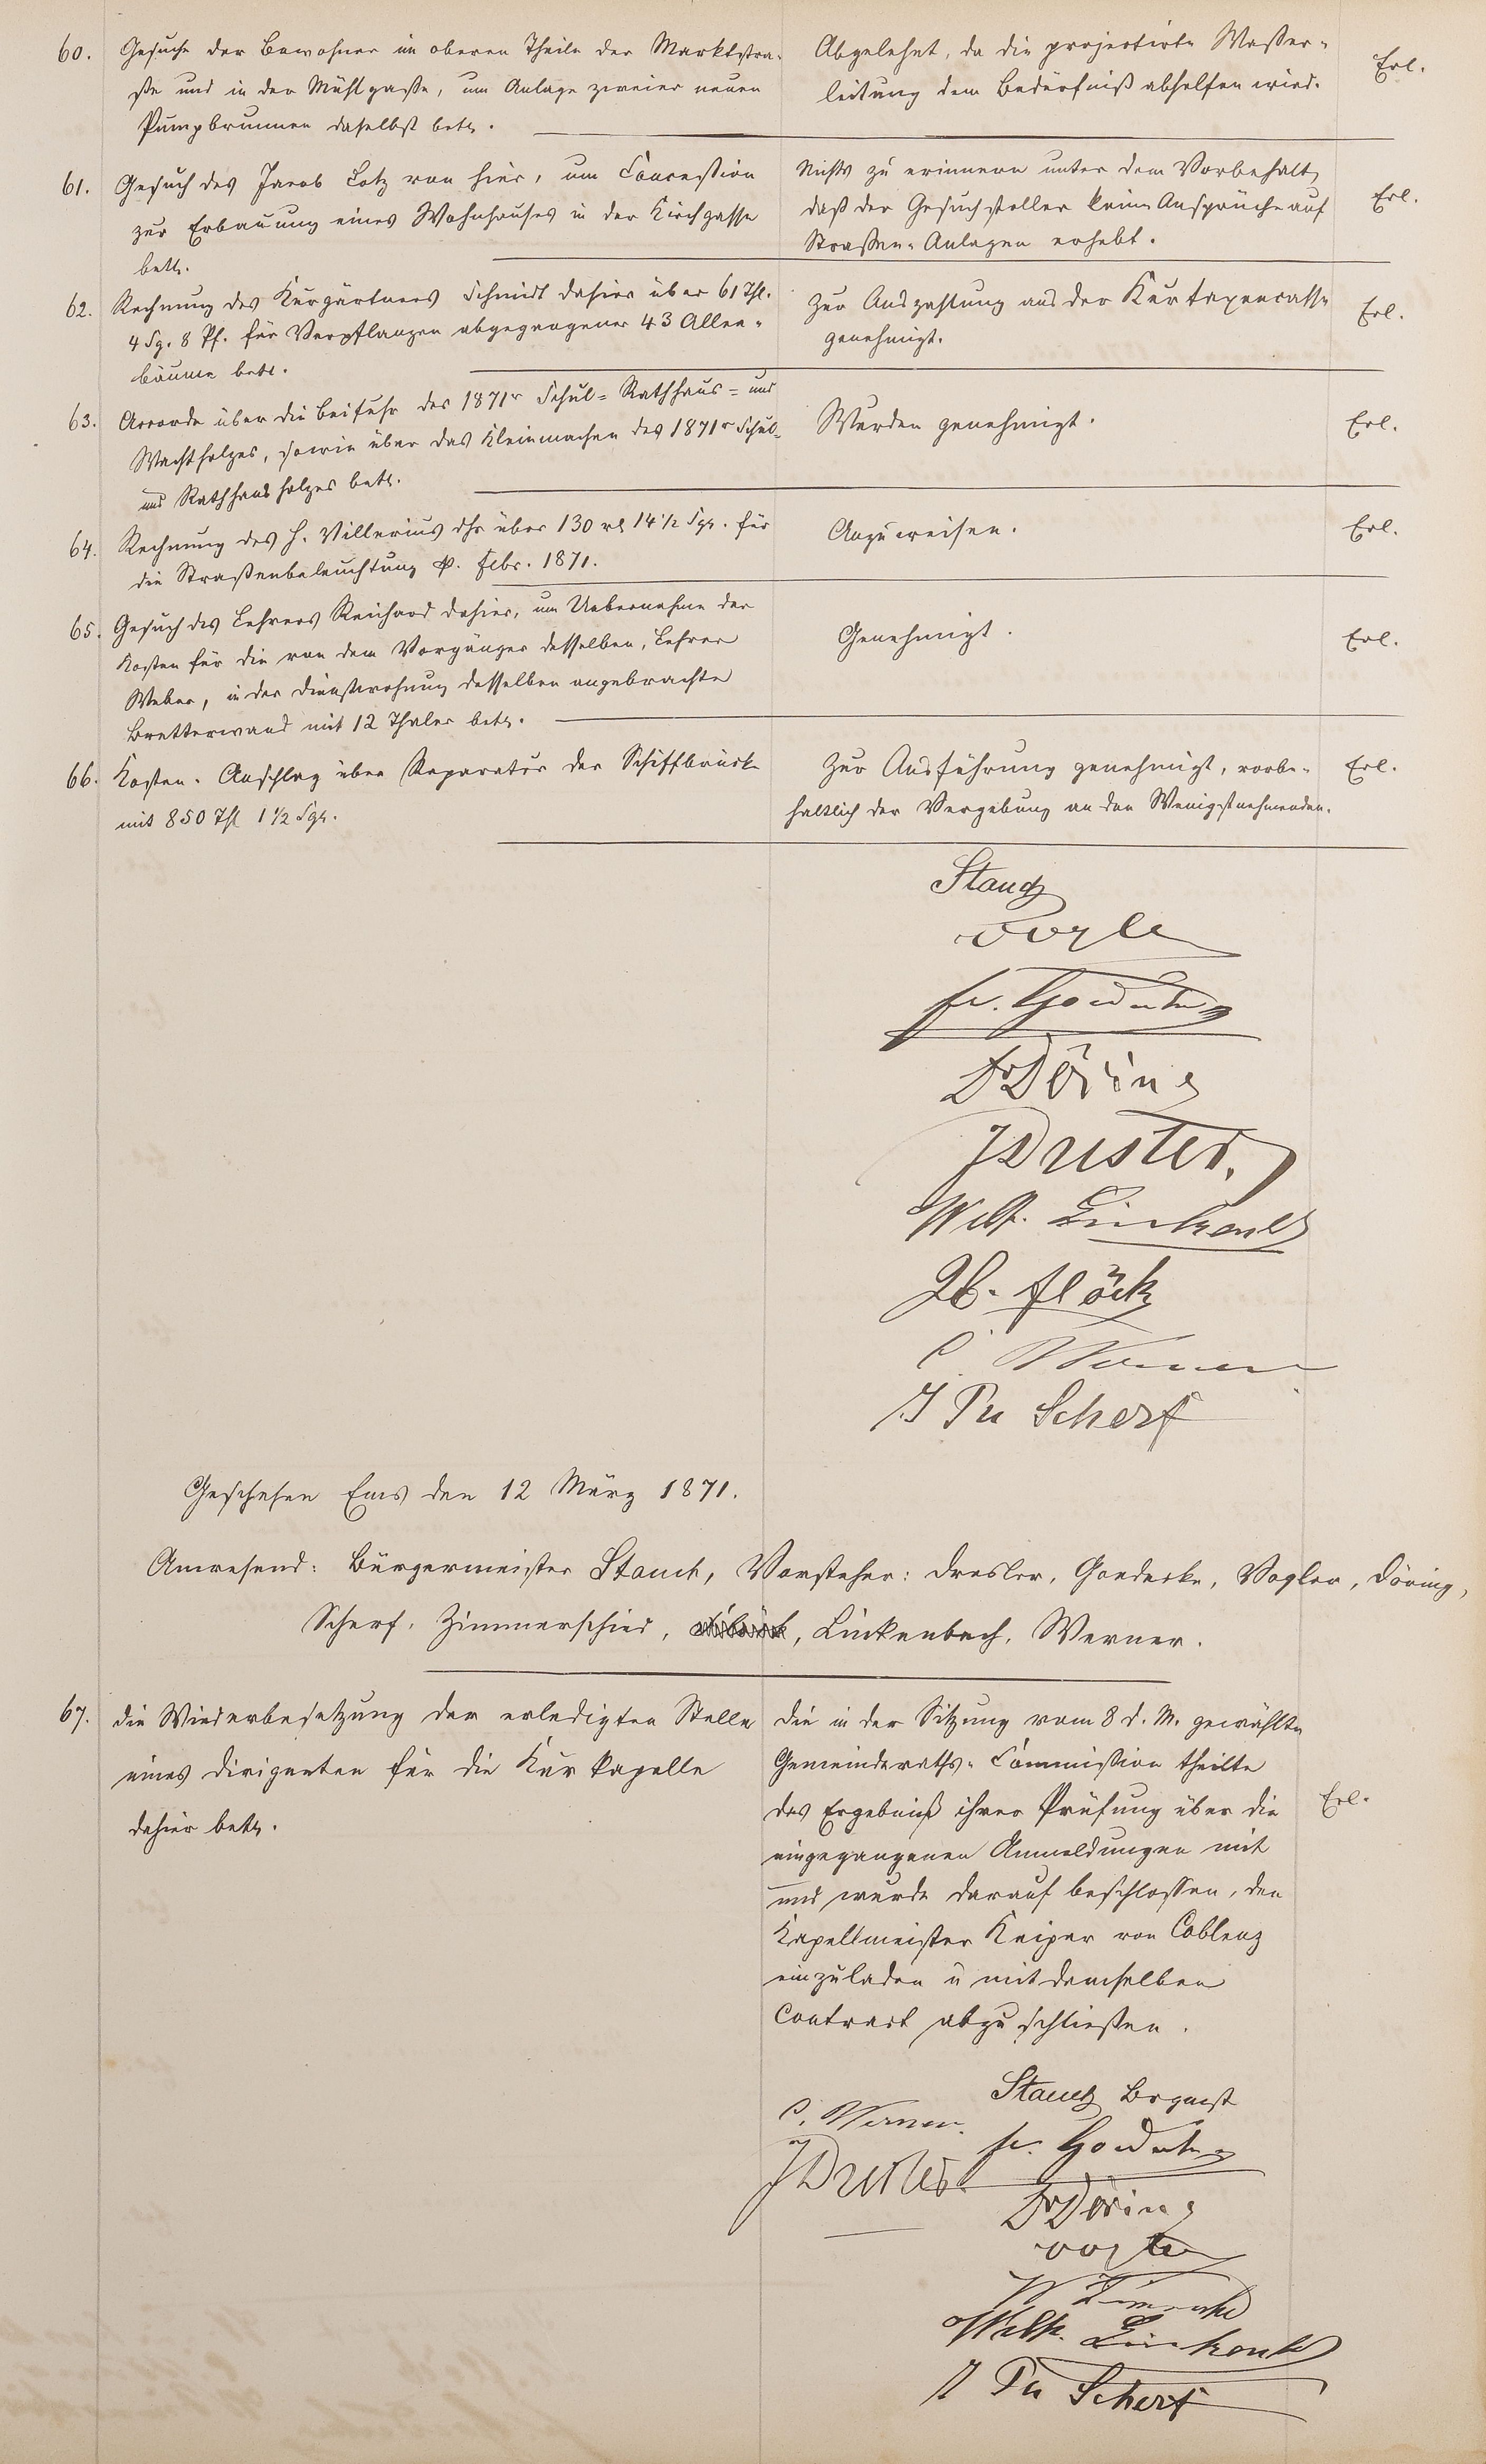 60. Gesuche der Bewohner im oberen Theile der Marktstra-
ße und in der Mühlgaße, um Anlage zweier neuen
Pumpbrunnen daselbst betr.
Abgelehnt, da die projectirte Waßer-
leitung dem Bedürfniß abhelfen wird.
Erl.
61. Gesuch des Jacob Lotz von hier, um Conceßion
zur Erbauung eines Wohnhauses in der Kirchgasse
betr.
Nichts zu erinnern unter dem Vorbehalt,
daß der Gesuchsteller keine Ansprüche auf
Straßen-Anlagen erhebt.
Erl.
62. Rechnung des Kurgärtners Schmidt dahier über 61 Thl.
4 Sg. 8 Pf. für Verpflanzen abgegangener 43 Allee-
bäume betr.
Zur Auszahlung aus der Kurtaxencasse
genehmigt.
Erl.
63. Accorde über die Beifuhr des 1871r Schul- Rathhaus- und
Wachtholzes, sowie über das Kleinmachen des 1871r Schul-
und Rathhausholzes betr.
Wurden genehmigt.
Erl.
64. Rechnung des H. Villerius dhr über 130 rl 14 1/2 Sgr. für
die Straßenbeleuchtung p. Febr. 1871.
Anzuweisen.
Erl.
65. Gesuch des Lehrers Reichard dahier, um Uebernahme der
Kosten für die von dem Vorgänger desselben, Lehrer
Weber, in der Dienstwohnung desselben angebrachte
Bretterwand mit 12 Thaler betr.
Genehmigt.
Erl.
66. Kosten-Anschlag über Reparatur der Schiffbrücke
mit 850 Thl 1 1/2 Sgr.
Zur Ausführung genehmigt, vorbe-
haltlich der Vergebung an den Wenigstnehmenden.
Erl.
Stauch
Vogler
Fr. Goedecke
Dr Döring
J Dresler.
Wilh. Linkenbach
Jb. Flöck
C. Werner
J Ph Scherf
Geschehen Ems den 12 März 1871.
Anwesend: Bürgermeister Stauch, Vorsteher: Dresler, Goedecke, Vogler, Döring,
Scherf, Zimmerschied, Linkenbach, Werner.
67. Die Wiederbesetzung der erledigten Stelle
eines Dirigenten für die Kurkapelle
dahier betr.
Die in der Sitzung vom 8 d. M. gewählte
Gemeinderaths-Commißion theilte
das Ergebniß ihrer Prüfung über die
eingegangenen Anmeldungen mit
und wurde darauf beschlossen, den
Kapellmeister Keiper von Coblenz
einzuladen u mit demselben
Contract abzuschließen.
Erl.
Stauch Brgmst
C. Werner.
Fr. Goedecke
J Dresler.
Dr Döring
Vogler
Wilh. Linkenbach
J Ph Scherf